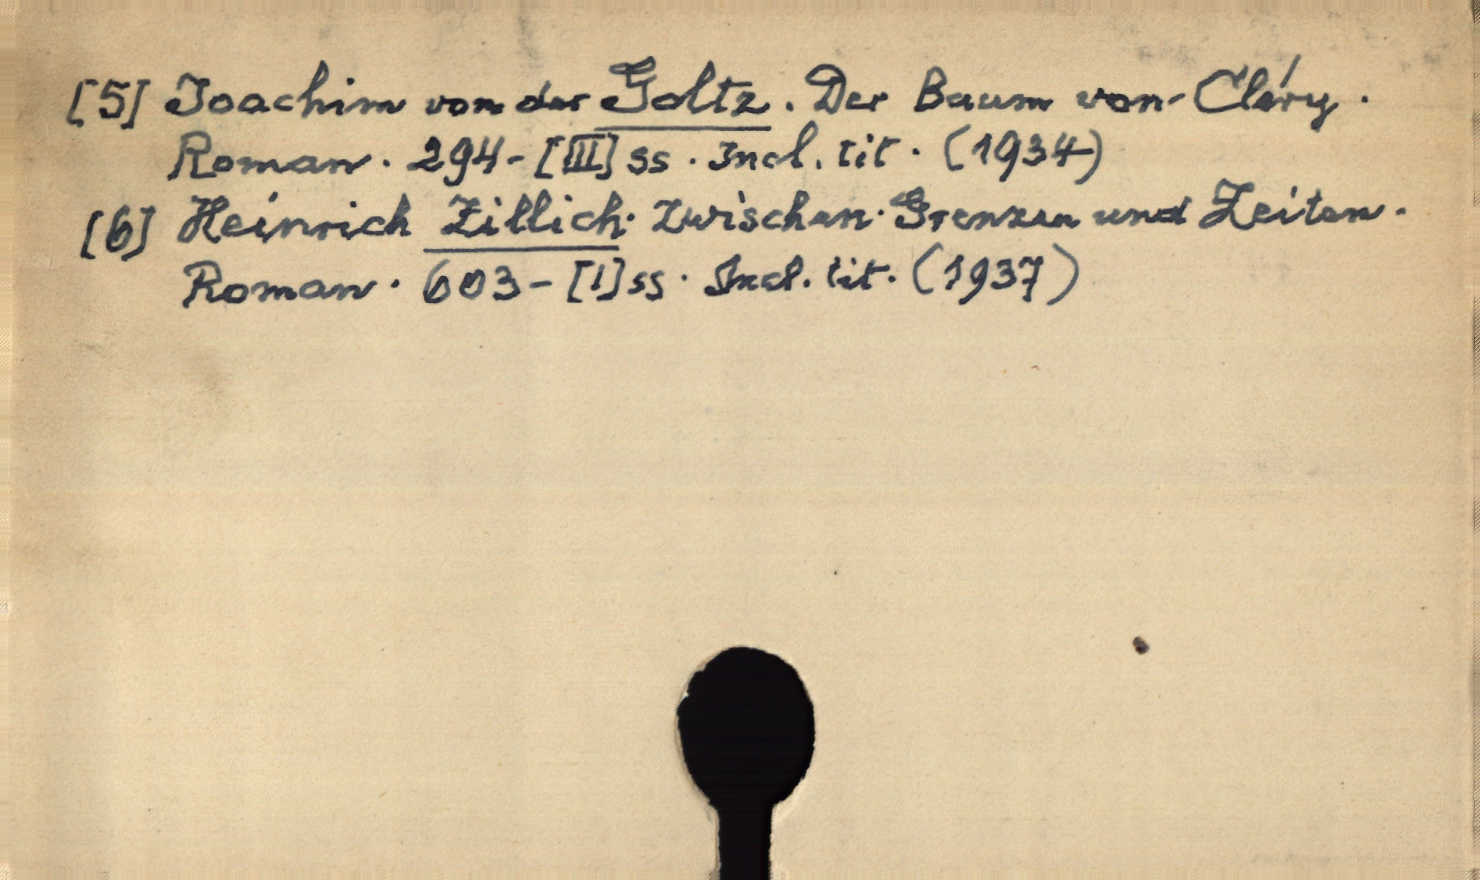 [5] Joachim von der Goltz. Der Baum von Cléry.
Roman. 294-[III] ss. Incl. tit. (1934)
[6] Heinrich Zillich. Zwischen Grenzen und Zeiten.
Roman. 603-[1] ss. Incl. tit. (1937)